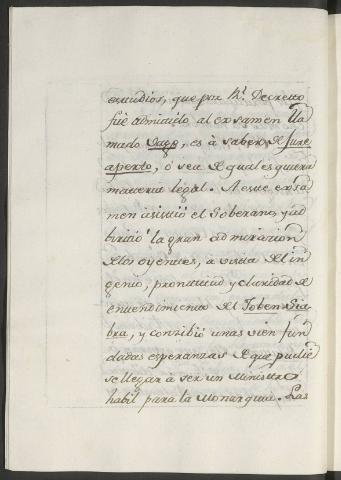 estudios, que por Rl. Decreto
fuè admitido al exsamen lla
mado Vago, es à saber, de jure
aperto, ó sea de qualesquiera
materia legal. A este exsa
men assistiò el Soberano, y ad
virtiò la gran admirazion
de los oyentes, à vista del in
genio, prontitud y claridad de
entendimiento del Joben Sia
bra, y conzibiò unas vien fun
dadas esperanzas de que pudie
se llegar à ser un Ministro
habil para la Monarquia. Las